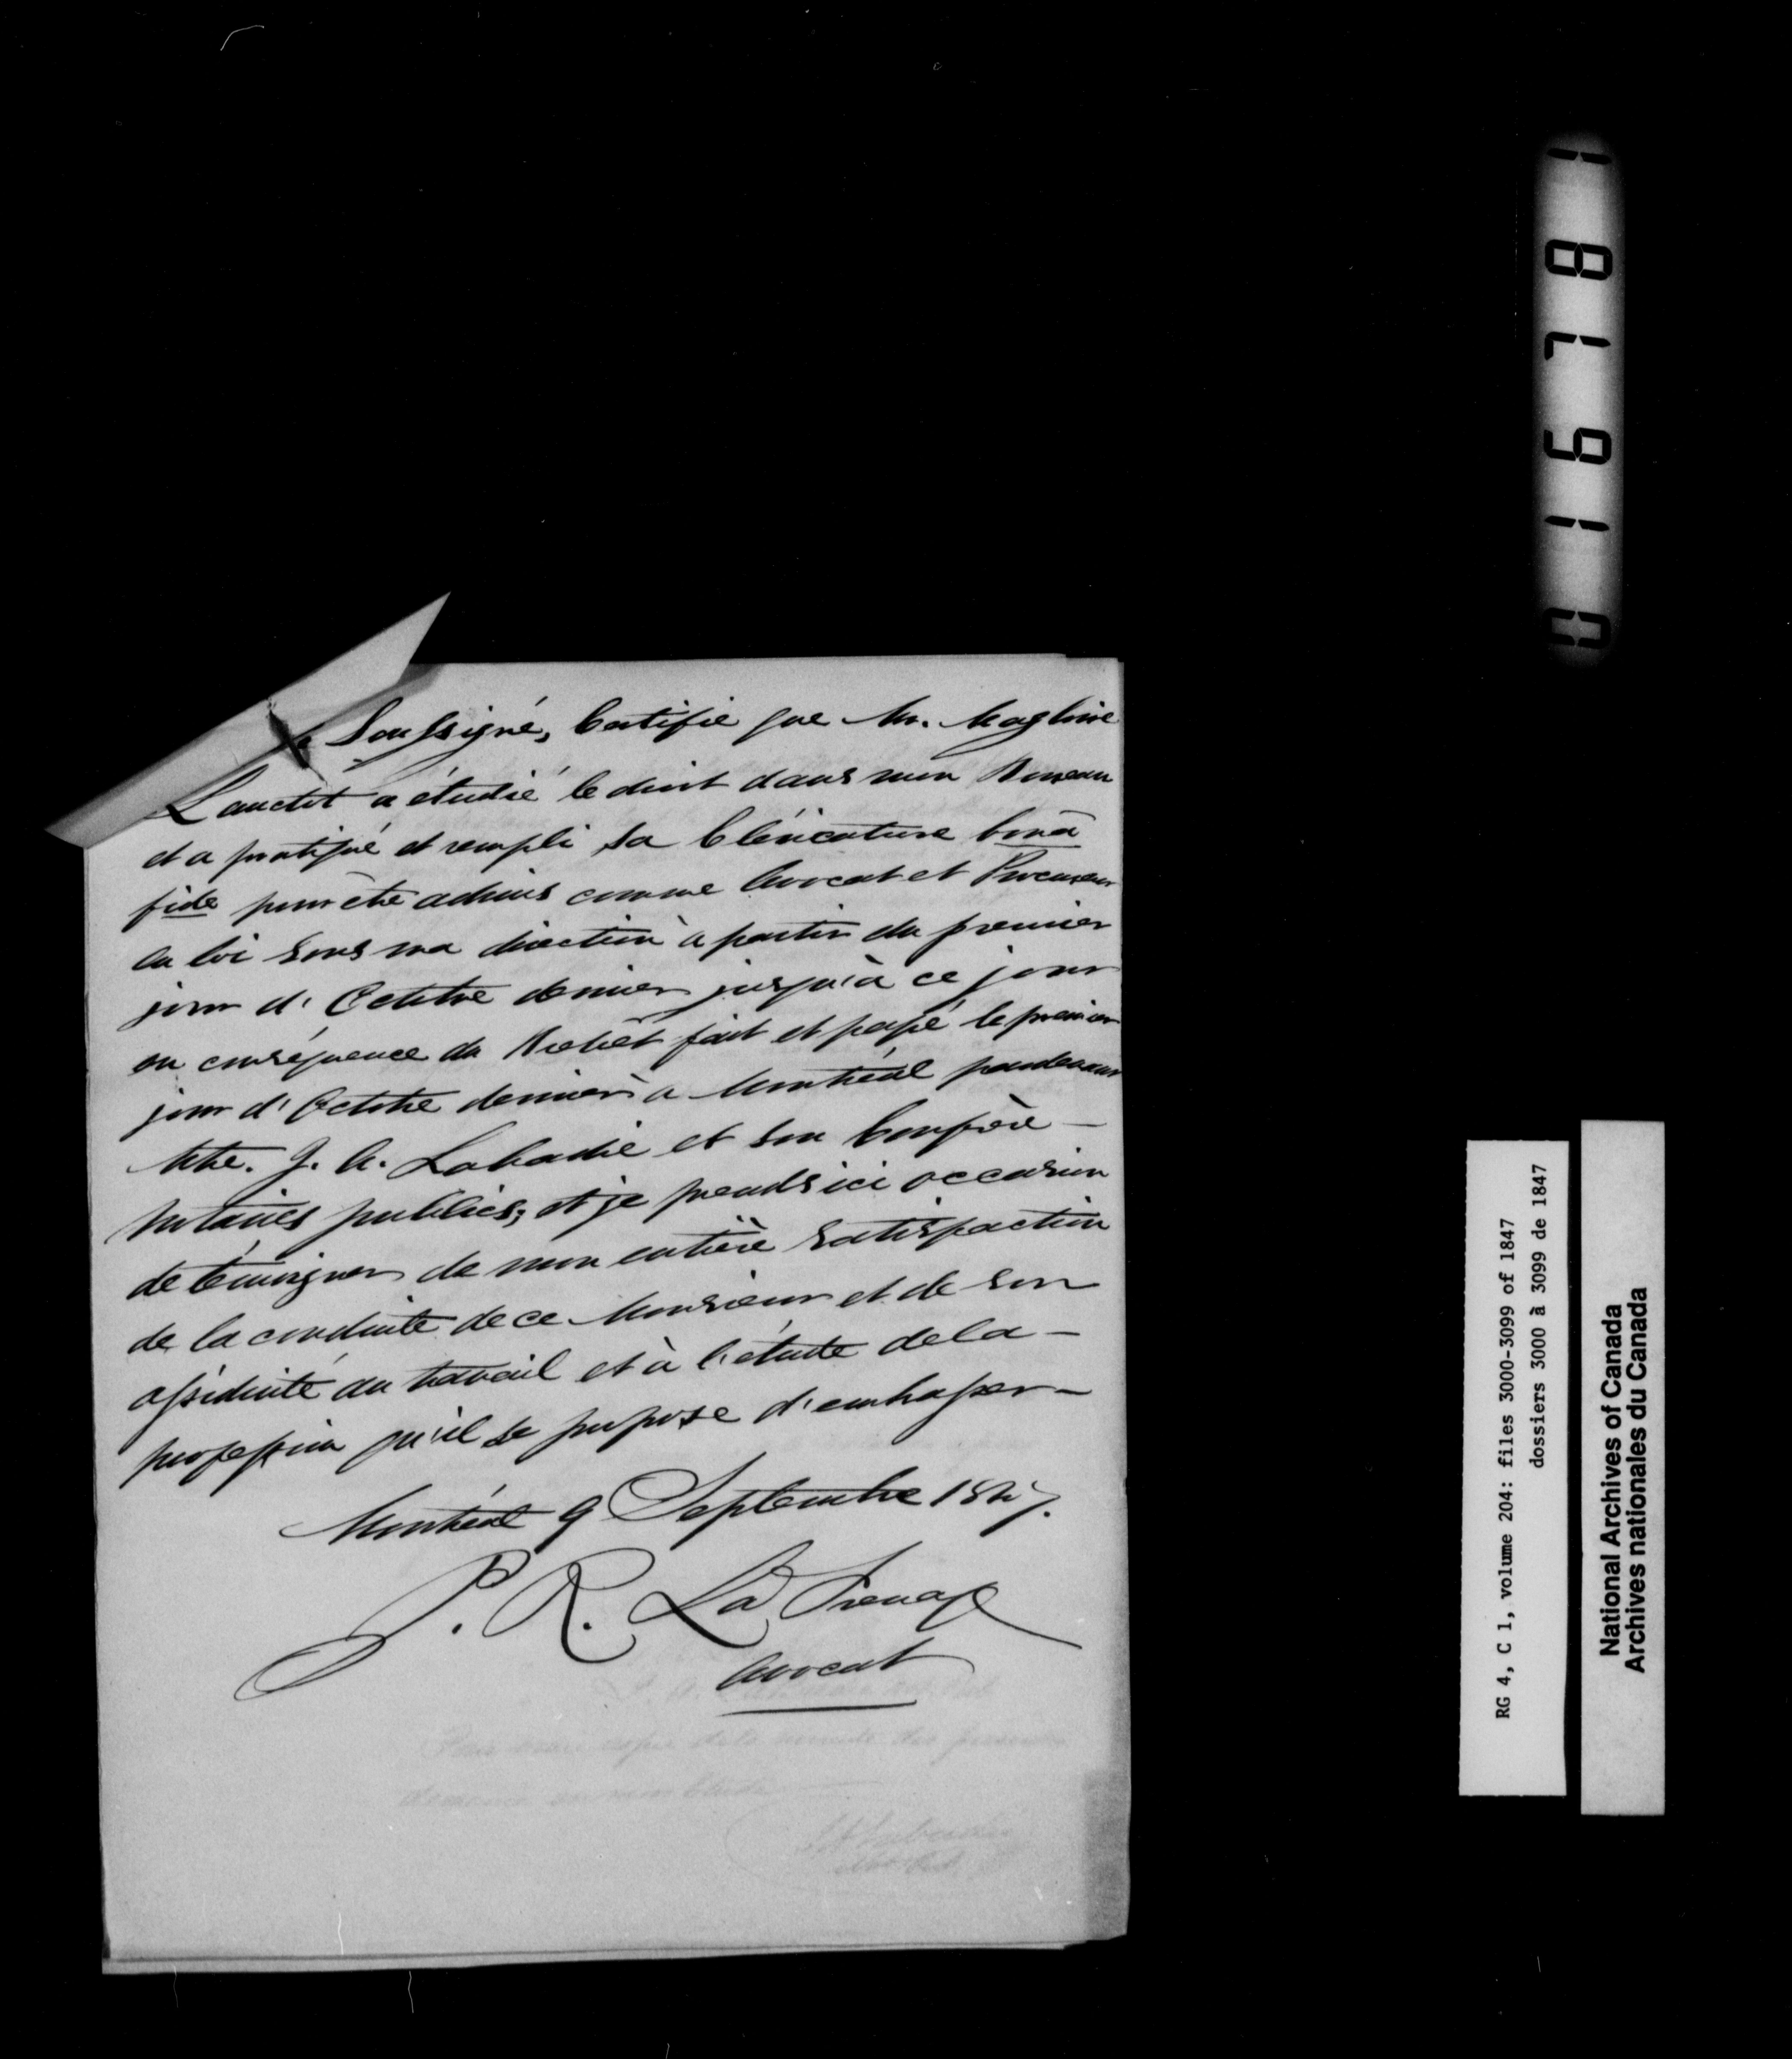 Soussigné, Certifie que Mr. Magloire
Lanctot a étudié le droit dans mon Bureau
et a pratiqué et rempli sa Cléricature bonâ
fide pour être admis comme Avocat et Procureur
en loi sous ma direction à partir du premier
jour d'Octobre dernier jusqu'à ce jour
en conséquence du Brevet fait et passé le premier
jour d'Octobre dernier à Montréal pardevant
Mtre. J. A. Labadie et son Confrère —
Notaires publics; et je prends ici occasion
de témoigner de mon entière satisfaction
de la conduite de ce Monsieur et de son
assiduité au travail et à l'étude de la —
profession qu'il se propose d'embrasser —
Montréal 9 Septembre 1847.
P. R. LaFrenaye
Avocat
016781
RG 4, C 1, volume 204: files 3000-3099 of 1847
dossiers 3000 à 3099 de 1847
National Archives of Canada
Archives nationales du Canada